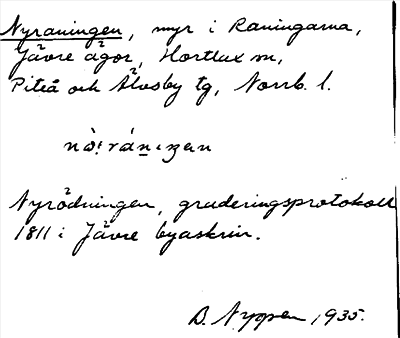 Nyraningen, myr i Raningarna,
Jävre ägor, Hortlax sn,
Piteå och Älvsby tg, Norrb. l.
Nyrödningen, graderingsprotokoll
1811 i Jävre byaskrin.
D. Nyppen 1935.